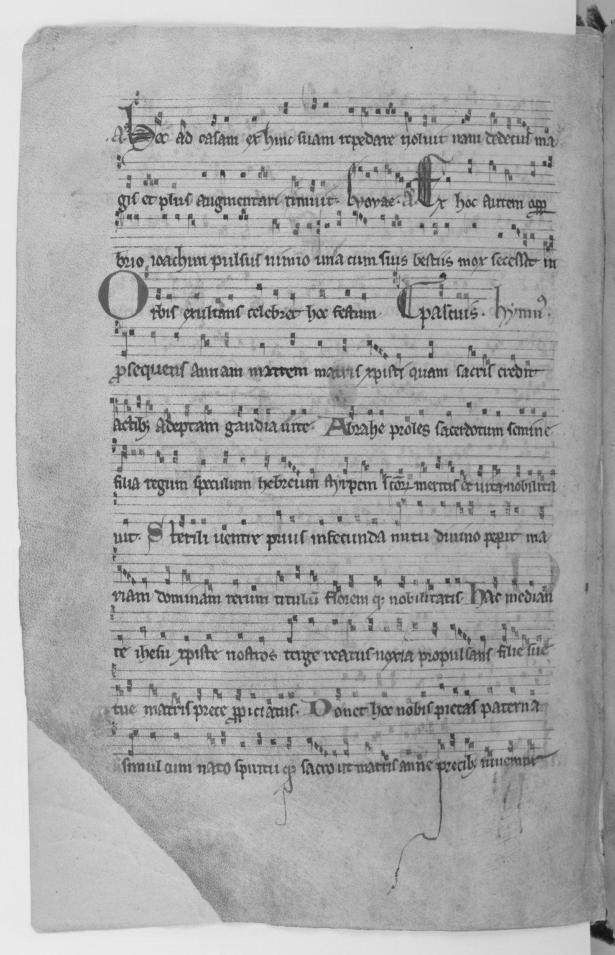 Nec ad casam ex hinc suam repedare noluit nam dedecus ma
gis et plus augmentari timuit. Evovae. A. Ex hoc autem opp
brio ioachim pulsus nimio una cum suis bestiis mox secessit in
Orbis exultans celebret hoc festum pascuis. hymnus.
prosequens annam matrem matris xpisti quam sacris credit
actibus adeptam gaudia vite. Abrahe proles sacerdotum semine
filia regum speculum hebreum styrpem meritis et vita nobilita
uit. Sterili uentre prius infecunda nutu diuino peperit ma
riam dominam rerum titulum florem q nobilitatis. Hac median
te ihesu xpiste nostros terge reatus noxia propulsans filie sue
tue matris prece propiciatus. Donet hoc nobis pietas paterna
simul cum nato spiritu q sacro ut matris anne precibus iuuemur